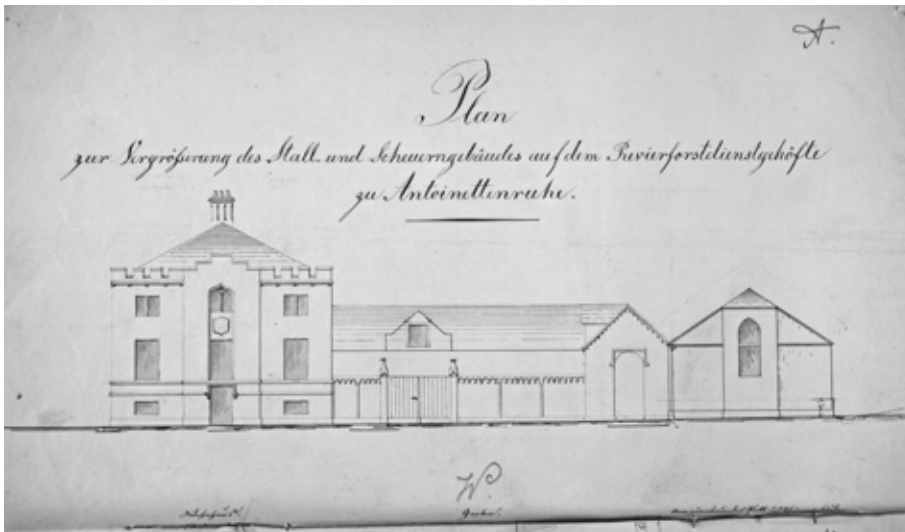 A.
Plan
zur Vergrößerung des Stall- und Scheuerngebäudes auf dem Revierforstdienstgehöfte
zu Antoinettenruhe.
W.